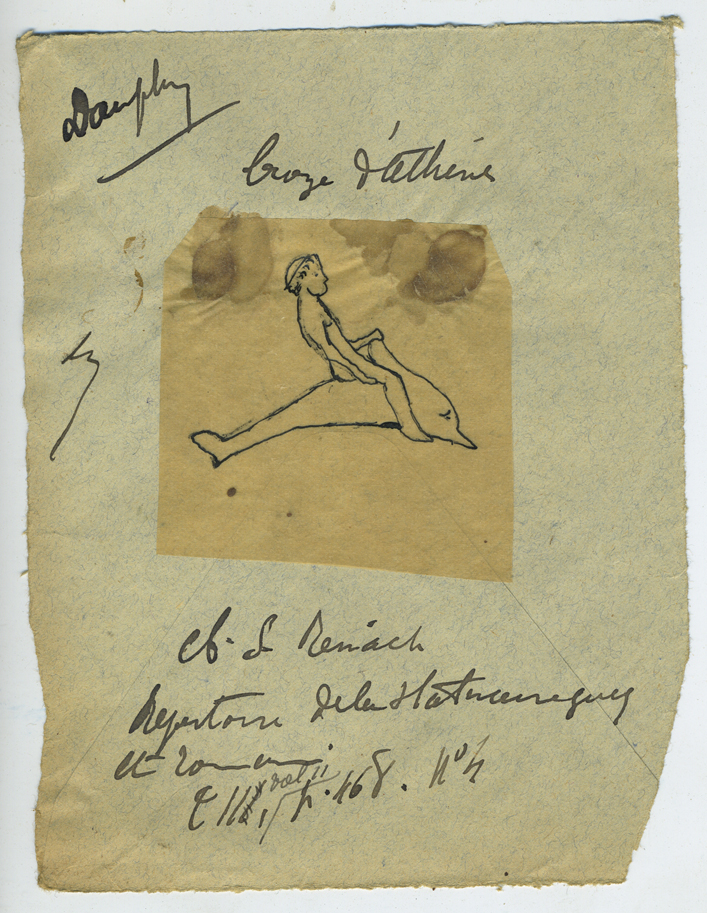 Dauphin
bronze d'Athènes
cf. S. Reinach
Répertoire de la statuaire grecq
et romaine
T II, vol II p. 468. N° 4